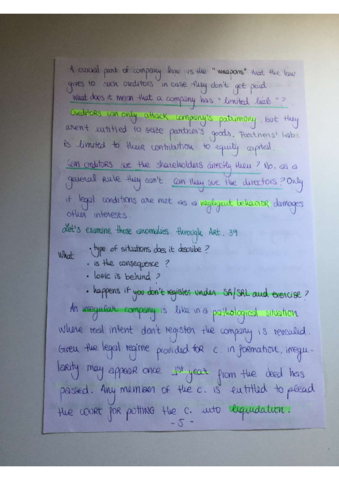 A crucial point of company law is the "weapons" that the law
gives to such creditors in case they don't get paid.
What does it mean that a company has "limited liab"?
Creditors can only attack company's patrimony, but they
aren't entitled to seize partner's goods. Partners' liab.
is limited to their contribution to equity capital
Can creditors sue the shareholders directly then? No, as a
general rule they can't. Can they sue the directors? Only
if legal conditions are met as a negligent behavior damages
other interests.
Let's examine these anomalies through Art. 39
What • type of situations does it describe?
• is the consequence?
• logic is behind?
• happens if you don't register under SA/SRL and exercise?
An irregular company is like in a pathological situation
where real intent don't register the company is revealed.
Given the legal regime provided for c. in formation, irregu-
larity may appear once 1st year from the deed has
passed. Any member of the c. is entitled to plead
the court for putting the c. into liquidation.
- 5 -